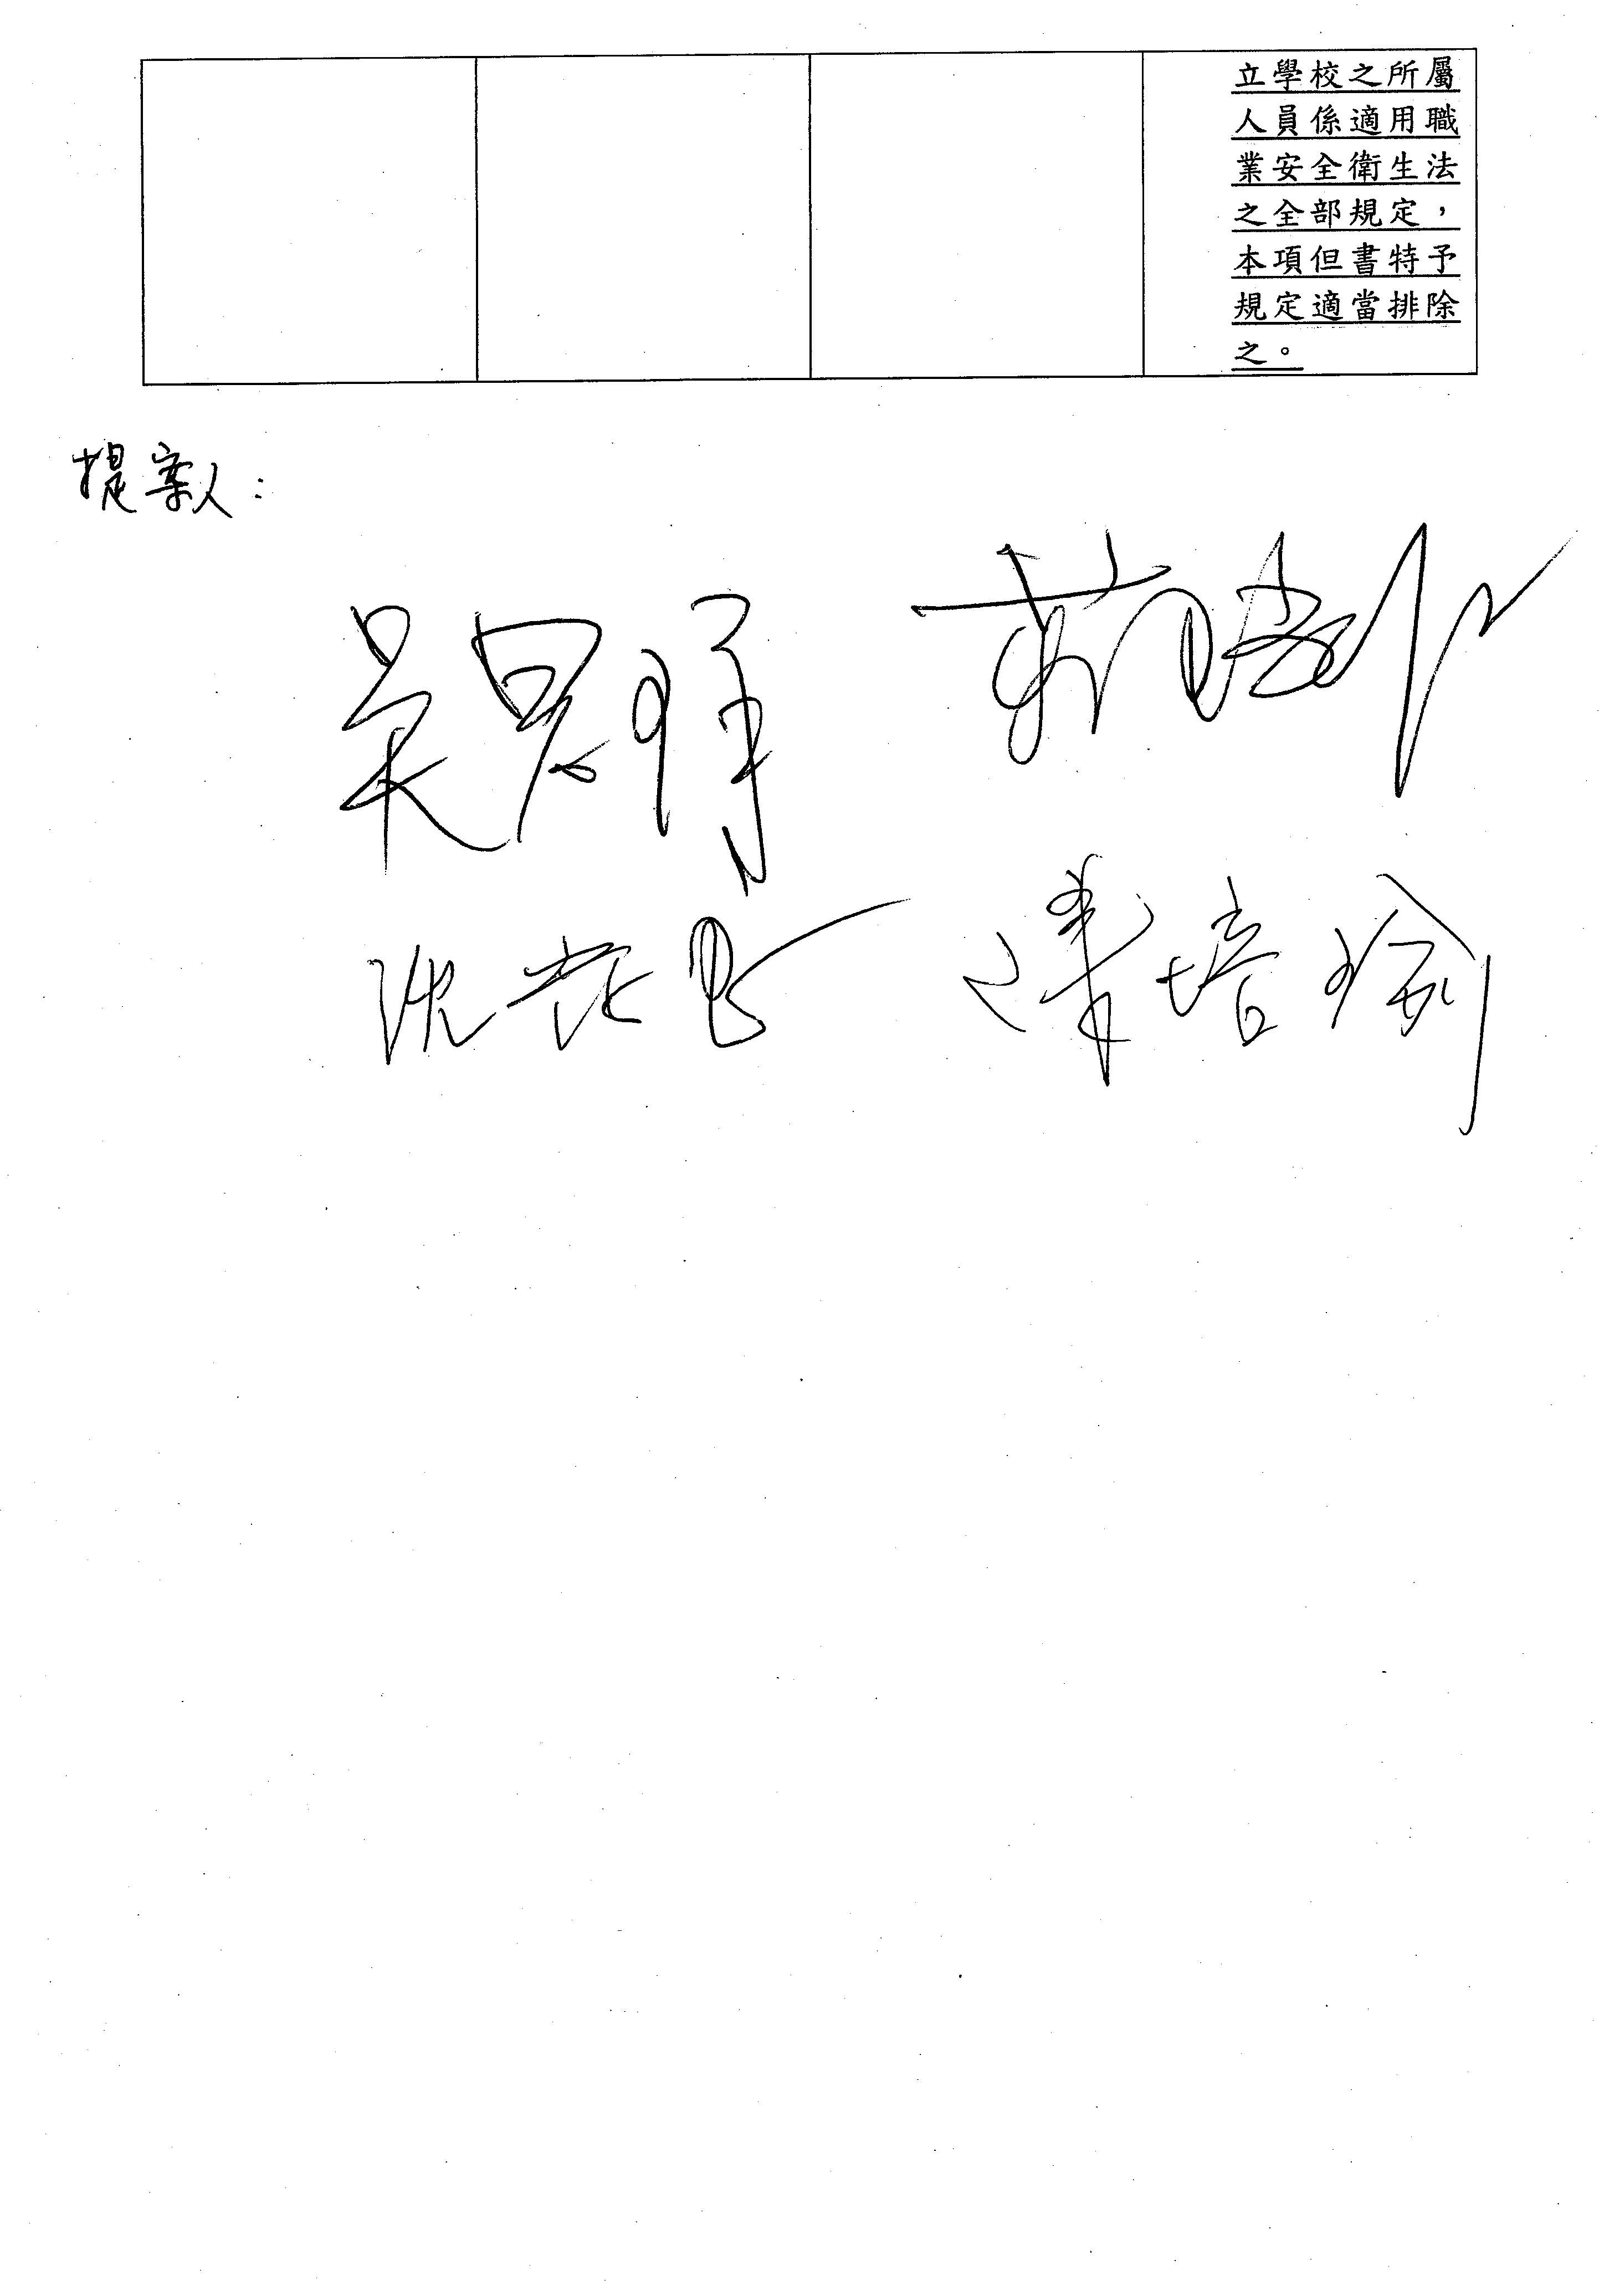 立學校之所屬
人員係適用職
業安全衛生法
之全部規定，
本項但書特予
規定適當排除
之。
提案人：
吳思瑤
沈發惠
陳培瑜